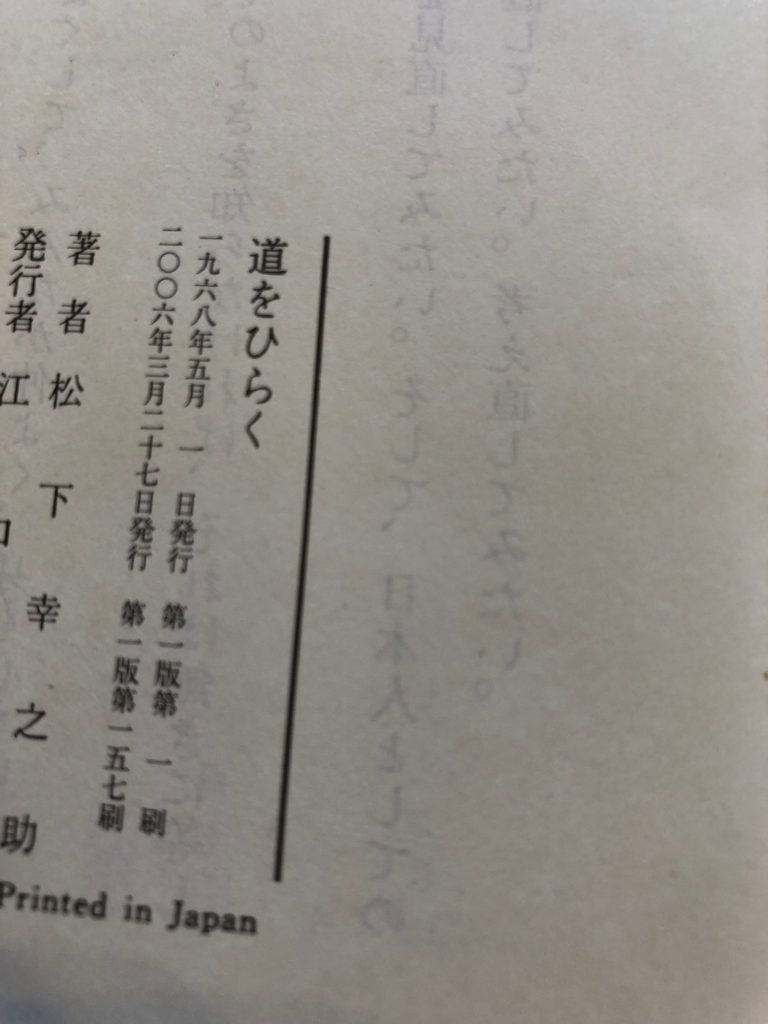 道をひらく
一九六八年五月 一 日発行 第一版第 一 刷
二〇〇六年三月二十七日発行 第一版第一五七刷
著 者 松 下 幸 之 助
発行者 江
Printed in Japan